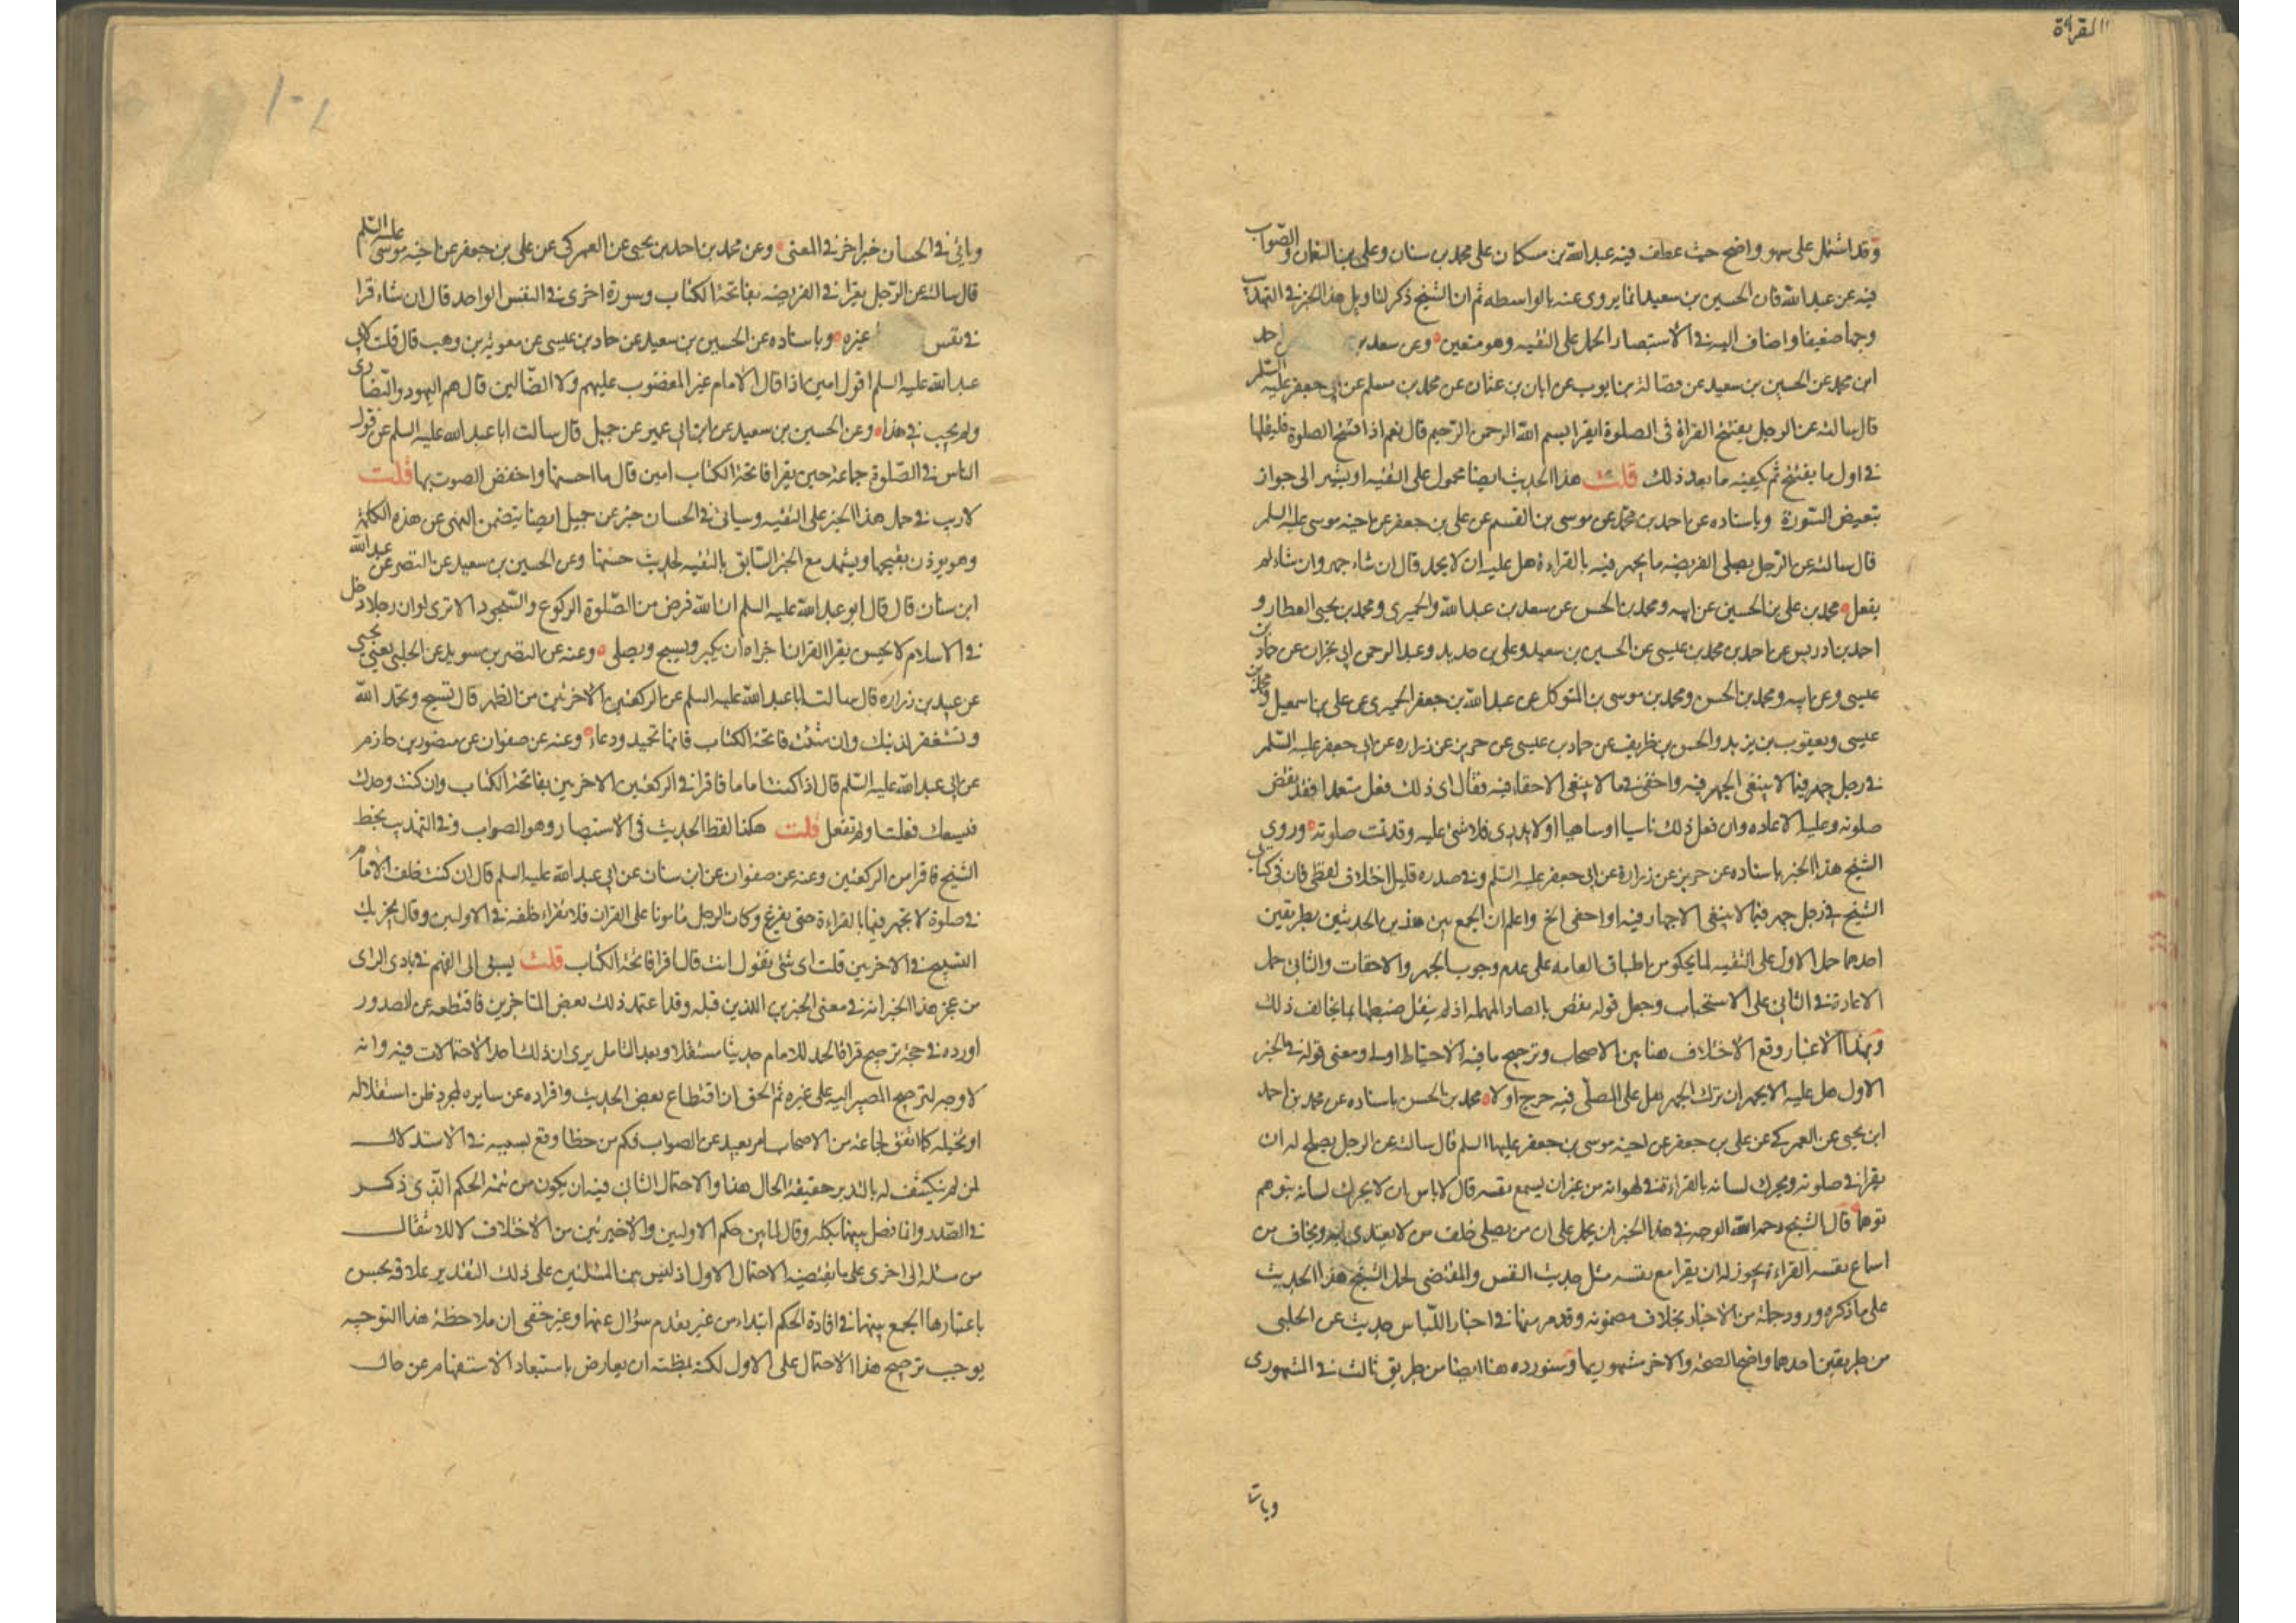 القراءة
وقد اشتمل على سهو واضح حيث عطف فيه عبد الله بن مسكان على محمد بن سنان وعلى بن النعمان والصواب
فيه عن عبد الله فان الحسين بن سعيد انما يروى عنه بالواسطه ثم ان الشيخ ذكر لتاويل هذا الخبر في التهذيب
وجها ضعيفا واضاف اليه في الاستبصار الحمل على التقيه وهو متعين وعن سعد بن احمد
ابن محمد عن الحسين بن سعيد عن فضالة بن ايوب عن ابان بن عثمان عن محمد بن مسلم عن ابى جعفر عليه السلم
قال سالته عن الرجل يفتتح القراة فى الصلوة ايقرا بسم الله الرحمن الرحيم قال نعم اذا افتتح الصلوة فليقلها
في اول ما يفتتح ثم يكفيه ما بعد ذلك قلت هذا الحديث ايضا محمول على التقيه او يشير الى جواز
تبعيض السورة وباسناده عن احمد بن محمد عن موسى بن القسم عن على بن جعفر عن اخيه موسى عليه السلم
قال سالته عن الرجل يصلى الفريضه ما يجهر فيه بالقراءة هل عليه ان لا يجهر قال ان شاء جهر وان شاء لم
يفعل محمد بن على بن الحسين عن ابيه ومحمد بن الحسن عن سعد بن عبد الله والحميرى ومحمد بن يحيى العطار و
احمد بن ادريس عن احمد بن محمد بن عيسى عن الحسين بن سعيد وعلى بن حديد وعبد الرحمن ابى نجران عن حماد بن
عيسى وعن ابيه ومحمد بن الحسن ومحمد بن موسى بن المتوكل عن عبد الله بن جعفر الحميرى عن على بن اسمعيل ومحمد بن
عيسى ويعقوب بن يزيد والحسن بن ظريف عن حماد بن عيسى عن حريز عن زراره عن ابى جعفر عليه السلم
في رجل جهر فيما لا ينبغى الجهر فيه واخفى فيما لا ينبغى الاخفاء فيه فقال اى ذلك فعل متعمدا فقد نقض
صلوته وعليه الاعاده وان فعل ذلك ناسيا او ساهيا او لا يدرى فلا شئ عليه وقد تمت صلوته وروى
الشيخ هذا الخبر باسناده عن حريز عن زرارة عن ابى جعفر عليه السلم وفي صدره قليل اختلاف لفظى فان فى كتاب
الشيخ في رجل جهر فيما لا ينبغى الاجهار فيه او اخفى الخ واعلم ان الجمع بين هذين الحديثين بطريقين
احدهما حمل الاول على التقيه لما يحكى من اطباق العامه على عدم وجوب الجهر والاخفات والثانى حمل
الاعادة في الثانى على الاستحباب وجعل قوله نقص بالصاد المهمله اذ لم ينقل ضبطها بما يخالف ذلك
وبهذا الاعتبار وقع الاختلاف هنا بين الاصحاب وترجيح ما فيه الاحتياط اولى ومعنى قوله في الخبر
الاول هل عليه الا يجهر ان ترك الجهر هل على المصلى فيه حرج او لا محمد بن الحسن باسناده عن محمد بن احمد
ابن يحيى عن العمركى عن على بن جعفر عن اخيه موسى بن جعفر عليهما السلم قال سالته عن الرجل يصلح له ان
يقرا في صلوته ويحرك لسانه بالقراءة في لهواته من غير ان يسمع نفسه قال لا باس ان لا يحرك لسانه يتوهم
توهما قال الشيخ رحمه الله الوجه في هذا الخبر ان يحمل على ان من يصلى خلف من لا يقتدى به ويخاف من
اسماع نفسه القراءة يجوز له ان يقرا مع نفسه مثل حديث النفس والمقتضى لحمل الشيخ هذا الحديث
على ما ذكره ورود جملة من الاخبار بخلاف مضمونه وقد مر منها في اخبار اللباس حديث عن الحلبى
من طريقين احدهما واضح الصحة والاخر مشهوريها وسنورده هنا ايضا من طريق ثالث في المشهورى
وياتى
وياتى في الحسان خبر اخر في المعنى وعن محمد بن احمد بن يحيى عن العمركى عن على بن جعفر عن اخيه موسى عليه السلم
قال سالته عن الرجل يقرا في الفريضه بفاتحة الكتاب وسورة اخرى في النفس الواحد قال ان شاء قرا
في نفس غيره وباسناده عن الحسين بن سعيد عن حماد بن عيسى عن معويه بن وهب قال قلت لابى
عبد الله عليه السلم اقول امين اذا قال الامام غير المغضوب عليهم ولا الضالين قال هم اليهود والنصارى
ولم يجب في هذا وعن الحسين بن سعيد عن ابن ابى عمير عن جميل قال سالت ابا عبد الله عليه السلم عن قول
الناس في الصلوة جماعة حين يقرا فاتحة الكتاب امين قال ما احسنها واخفض الصوت بها قلت
لا ريب في حمل هذا الخبر على التقيه وسياتى في الحسان خبر عن جميل ايضا يتضمن النهى عن هذه الكلمة
وهو يوذن بقبحها ويشهد مع الخبر السابق بالتقيه لحديث حسنها وعن الحسين بن سعيد عن النضر عن عبد الله
ابن سنان قال قال ابو عبد الله عليه السلم ان الله فرض من الصلوة الركوع والسجود الا ترى لو ان رجلا دخل
في الاسلام لا يحسن يقرا القران اجزاه ان يكبر ويسبح ويصلى وعنه عن النضر بن سويد عن الحلبى يعنى يحيى
عن عبيد بن زراره قال سالت ابا عبد الله عليه السلم عن الركعتين الاخرتين من الظهر قال تسبح وتحمد الله
وتستغفر لذنبك وان شئت فاتحة الكتاب فانها تحميد ودعاء وعنه عن صفوان عن منصور بن حازم
عن ابى عبد الله عليه السلم قال اذا كنت اماما فاقرا في الركعتين الاخرتين بفاتحة الكتاب وان كنت وحدك
فيسعك فعلت او لم تفعل قلت هكذا لفظ الحديث فى الاستبصار وهو الصواب وفي التهذيب بخط
الشيخ فاقرا من الركعتين وعنه عن صفوان عن ابن سنان عن ابى عبد الله عليه السلم قال ان كنت خلف الامام
في صلوة لا تجهر فيها بالقراءة حتى يفرغ وكان الرجل مامونا على القران فلا تقراء خلفه في الاولين وقال يجزيك
التسبيح في الاخرتين قلت اى شئ تقول انت قال اقرا فاتحة الكتاب قلت يسبق الى الفهم في بادى الراى
من عجز هذا الخبر انه في معنى الخبرين اللذين قبله وقد اعتمد ذلك بعض المتاخرين فاقتطعه عن الصدور
اورده في حجة ترجيح قراة الحمد للامام حديثا مستقلا وبعد التامل يرى ان ذلك احد الاحتمالات فيه وانه
لا وجه لترجيح المصير اليه على غيره ثم الحق ان اقتطاع بعض الحديث وافراده عن سايره لمجرد ظن استقلاله
او تخيله كما اتفق لجماعة من الاصحاب امر بعيد عن الصواب فكم من خطا وقع بسببه في الاستدلال
لمن لم ينكشف له بالتدبر حقيقة الحال هنا والاحتمال الثانى فيه ان يكون من تتمة الحكم الذى ذكر
في الصدر وانما فصل بينهما بكلمة وقال لما بين حكم الاولتين والاخيرتين من الاختلاف لا للانتقال
من مسئلة الى اخرى على ما يقتضيه الاحتمال الاول اذ ليس بين المسئلتين على ذلك التقدير علاقة يحسن
باعتبارها الجمع بينهما في افادة الحكم ابتداء من غير تقدم سؤال عنها وغير خفى ان ملاحظة هذا التوجيه
يوجب ترجيح هذا الاحتمال على الاول لكنه بمظنة ان يعارض باستبعاد الاستفهام عن حال